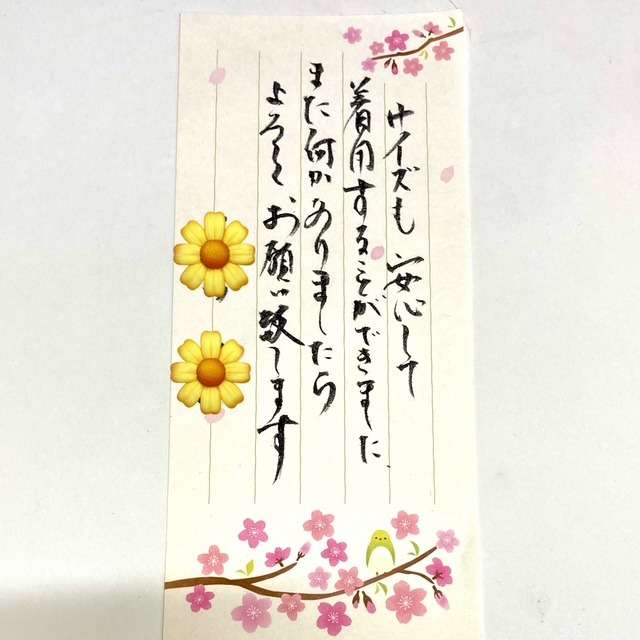 サイズも安心して
着用することができました
また何かありましたら
よろしくお願い致します